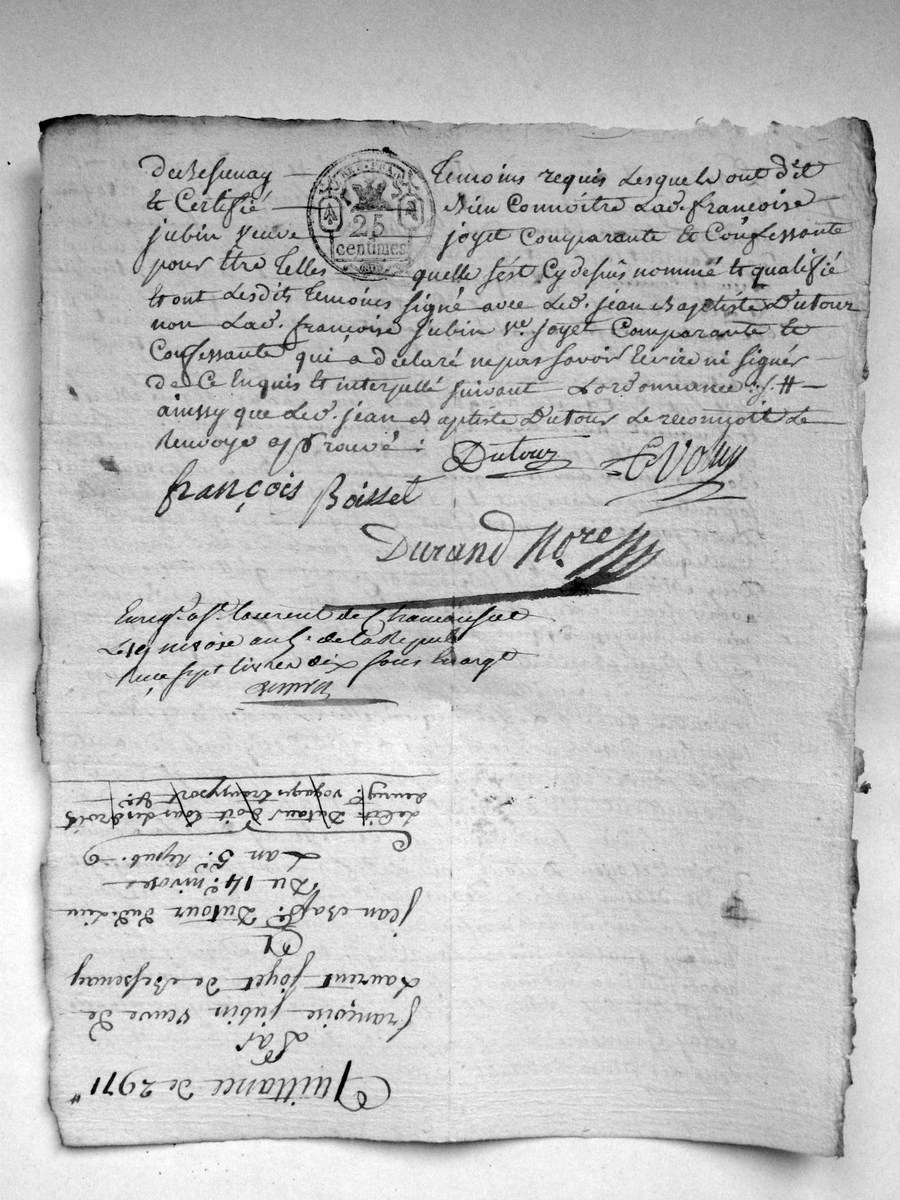 de Bessenay — temoins requis Lesquels ont dit
et Certifié — Bien Connoitre Lad. françoise
jubin veuve joyet Comparante et Confessante
pour être telles quelle s'est Cy dessus nommé et qualifié
et ont Lesdits temoins signé avec Led. jean Baptiste Dutour
non Lad. françoise jubin ve. joyet Comparante et
Confessante qui a déclaré ne pas savoir Ecrire ni signer
de Ce Enquis et interpellé suivant L'ordonnance #
ainssy que Led. jean Baptiste Dutour Le reconnoit Le
Renvoye approuvé :
REP. FRA.
25
centimes
Dutour
françois Boisset
Durand Nore
Enreg. a St. Laurent de Chamousset
Le 19 nivose an 5e. de la Repub
Reçu sept livres dix sous en argt
Quittance de 2971#
Par
françoise jubin veuve de
Laurent joyet de Bessenay
A
jean Bapt. Dutour dud. Lieu
Du 14e. nivose
Lan 5e. répub.
ledit Dutour doit tous les droits
denreg. voyages transport &a.